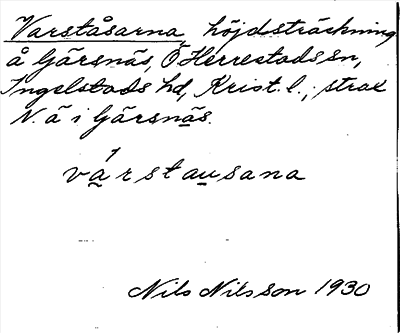 Varståsarna, höjdsträckning
å Gärsnäs, Ö. Herrestads sn,
Ingelstads hd, Krist. l.; strax
N. ä i Gärsnäs.
várstausana
Nils Nilsson 1930